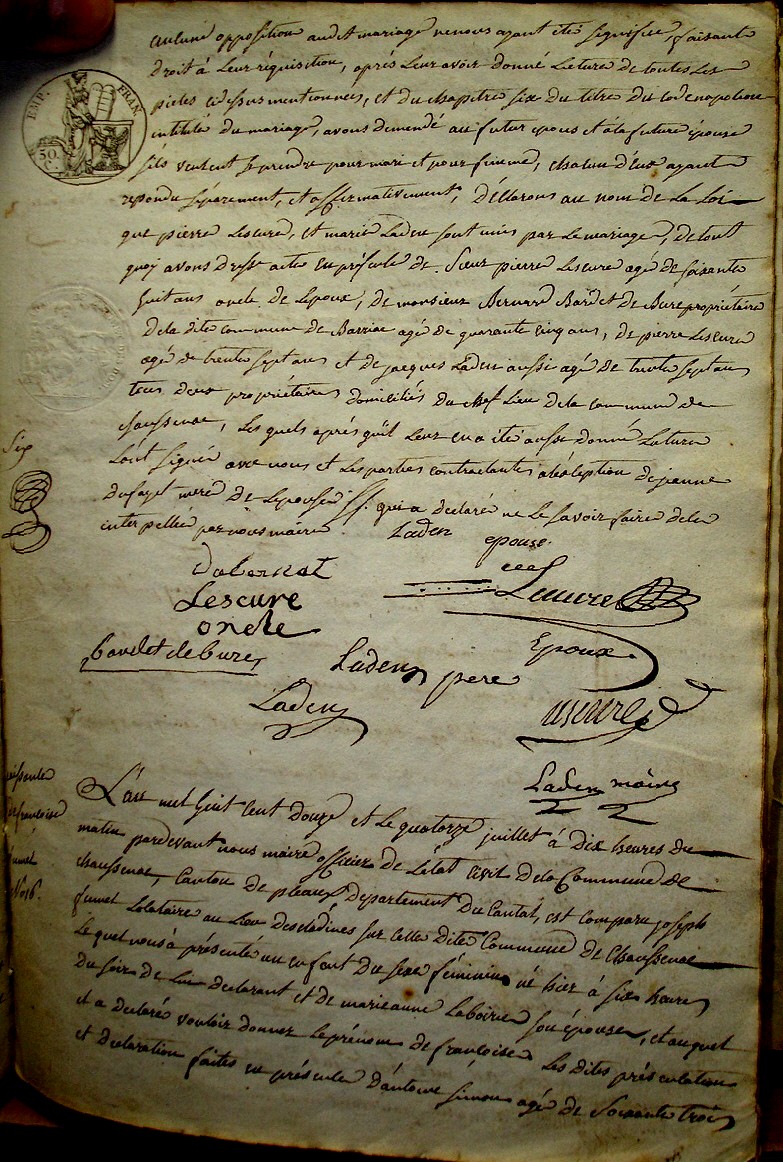 aucune opposition audit mariage ne nous ayant été signifiée, faisant
droit à leur réquisition, après leur avoir donné lecture de toutes les
pieces cidessus mentionnées, et du chapitre six du titre du code napoléon
EMP. FRAN.
50. C.
intitulé du mariage, avons demandé au futur epous et à la future épouse
s'ils veulent se prendre pour mari et pour femme, chacun d'Eux ayant
repondu séparement, et affirmativement, déclarons au nom de la Loi
que pierre Lescure, et marie Laden sont unis par le mariage, de tout
quoi avons dressé acte en présence de Sieur pierre Lescure agé de soixante
huit ans oncle de Lepoux, de monsieur Bernard Bardet de Bure propriétaire
dela dite commune de Barriac agé de quarante cinq ans, de pierre Lescure
agé de trente sept ans et de jacques Laden aussi agé de trente sept ans
tous deux propriétaires domiciliés du chef Lieu dela commune de
chaussenac, Les quels après qu'il Leur en a été aussi donné Lecture
Six
sont signés avec nous et Les parties contractantes à L'exception de jeanne
dufayet mere de Lepouse qui a déclaré ne le savoir faire de ce
interpellée par nous maire
Laden epouse
Lescure
Lescure
oncle
Epoux
bardet de bure
Laden pere
Laden
Lescure
Laden maire
L'an mil huit cent douze et le quatorze juillet à dix heures du
matin pardevant nous maire officier de Létat civil dela Commune de
françoise
chaussenac, Canton de pleaux Departement du Cantal, est comparu joseph
funel
N° 16.
funel Locataire au Lieu sur cette Dite Commune de Chaussenac
Lequel nous à présenté un enfant du sexe féminin né hier à six heures
du soir de Lui déclarant et de marieanne Laboirie son épouse, et auquel
il a déclaré vouloir donner le prénom de françoise Les dites présentation
et déclaration faites en présence d'antoine simon agé de Soixante trois